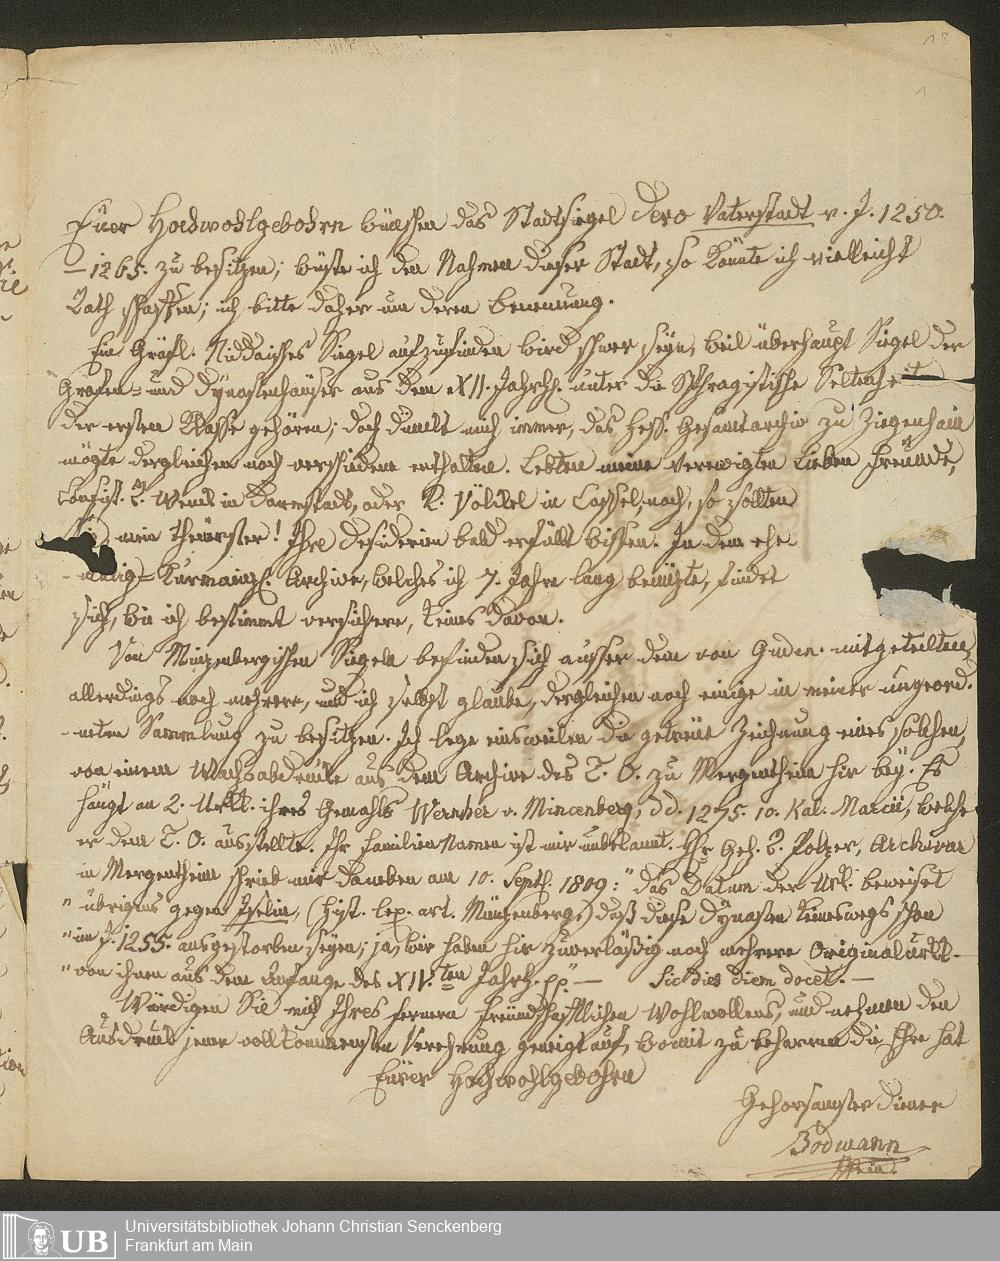 18
1
Euer Hochwohlgebohrn wünschen das Stadtsiegel Dero Vaterstadt v. J. 1250.
– 1265. zu besitzen; wüste ich den Nahmen dieser Stadt, so könnte ich vielleicht
Rath schaffen; ich bitte daher um deren Benennung.
Ein Gräfl. Niddaisches Siegel aufzufinden wird schwer seyn, weil überhaupt Siegel der
Grafen- und Dynastenhäuser aus dem XII. Jahrh. unter die Sphragistische Seltenheit
der ersten Klasse gehören; doch dünckt mich immer, das Hess. Gesamtarchiv zu Ziegenhain
mögte dergleichen noch verschiedene enthalten. Lebten meine verewigten lieben Freunde,
Consist. R. Wenck in Darmstadt, oder R. Völckel in Cassel, noch, so sollten
mein theürster! Ihre Desiderien bald erfüllt wissen. In dem ehe-
-malig-Kurmainz. Archive, welches ich 7. Jahre lang benüzte, findet
sich, wie ich bestimmt versichere, keines davon.
Von Münzenbergischen Siegeln befinden sich ausser dem von Guden. mitgeteilten,
allerdings noch mehrere, und ich selbst glaube, dergleichen noch einige in meiner ungeord-
-neten Sammlung zu besitzen. Ich lege einsweilen die getreue Zeichnung eines solchen,
von einem Wachsabdrucke aus dem Archive des T. O. zu Mergentheim hier bey. Es
hängt an 2. Urkk. ihres Gemahls Wernher v. Mincenberg, dd. 1275. 10. Kal. Marcii, welche
er dem T. O. ausstellte. Ihr FamilienNamen ist mir unbekannt. Hr Geh. R. Polzer, Archivar
in Mergentheim schrieb mir daneben am 10. Septb. 1809: "das Datum der Urk. beweiset
" übrigens gegen Iselin, (hist. Lex. art. Münzenberg) daß diese Dynasten keineswegs schon
" im J. 1255. ausgestorben seyen; ja, wir haben hier zuverläßig noch mehrere Originalurkk.
" von ihnen aus dem Anfange des XIV.ten Jahrh. pp" – Sic dies diem docet. –
Würdigen Sie mich Ihres fernern freundschaftlichen Wohlwollens, und nehmen den
Ausdruck jener vollkommensten Verehrung geneigt auf, womit zu beharren die Ehre hat
Euer Hochwohlgebohrn
Gehorsamster Diener
Bodmann
UB Universitätsbibliothek Johann Christian Senckenberg
Frankfurt am Main